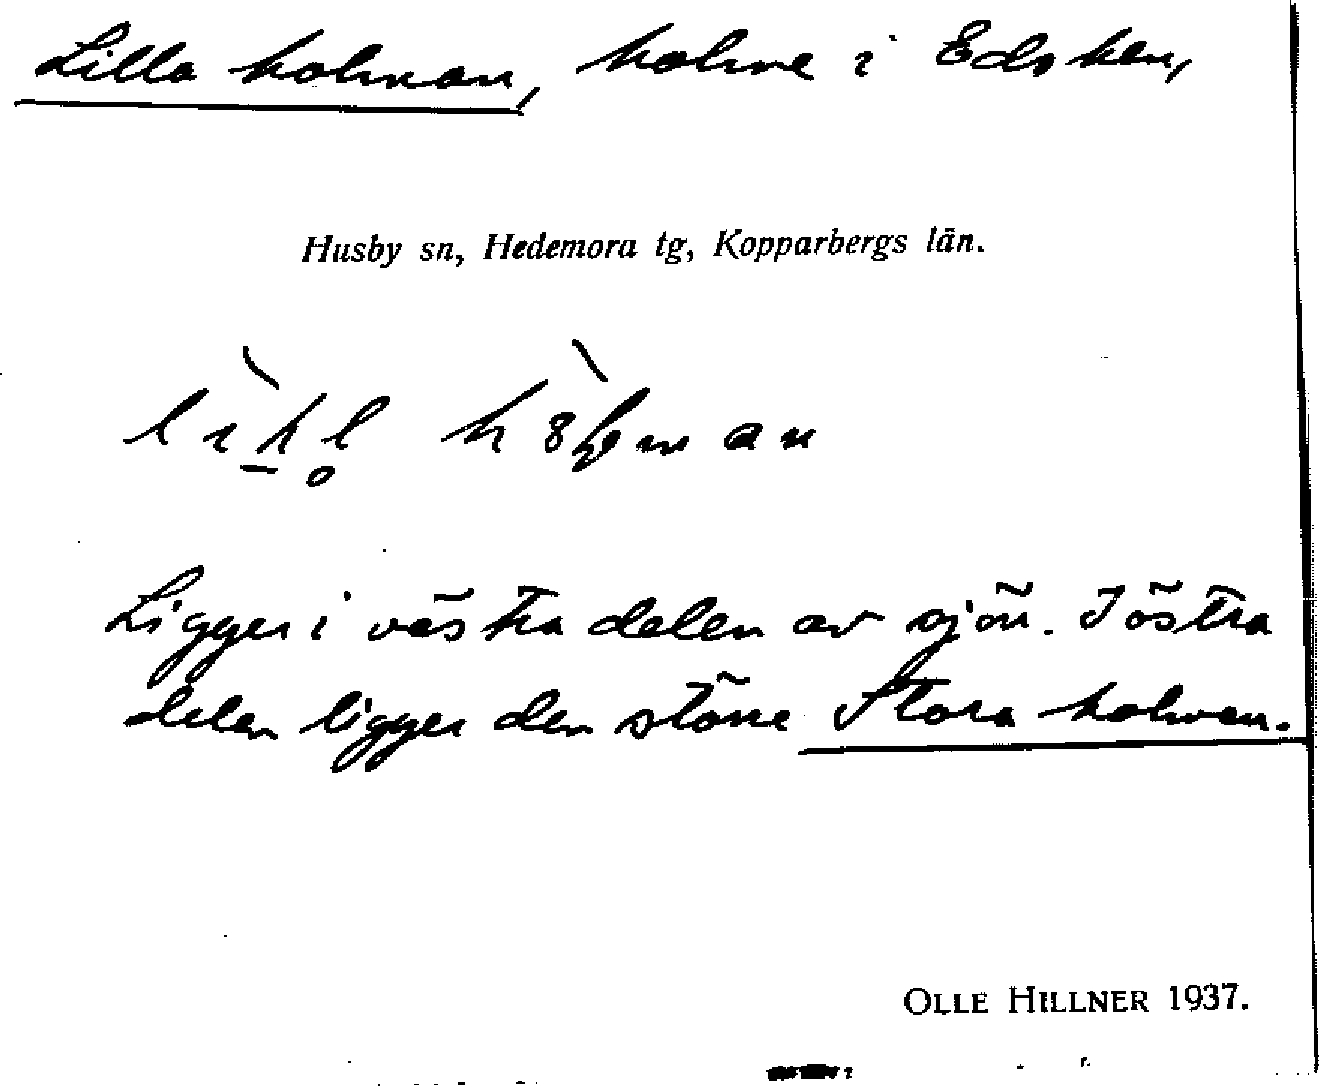 Lilla holman, holme i Edsken,
Husby sn, Hedemora tg, Kopparbergs län.
Ligger i västra delen av sjön. I östra
delen ligger den större Stora holmen.
OLLE HILLNER 1937.